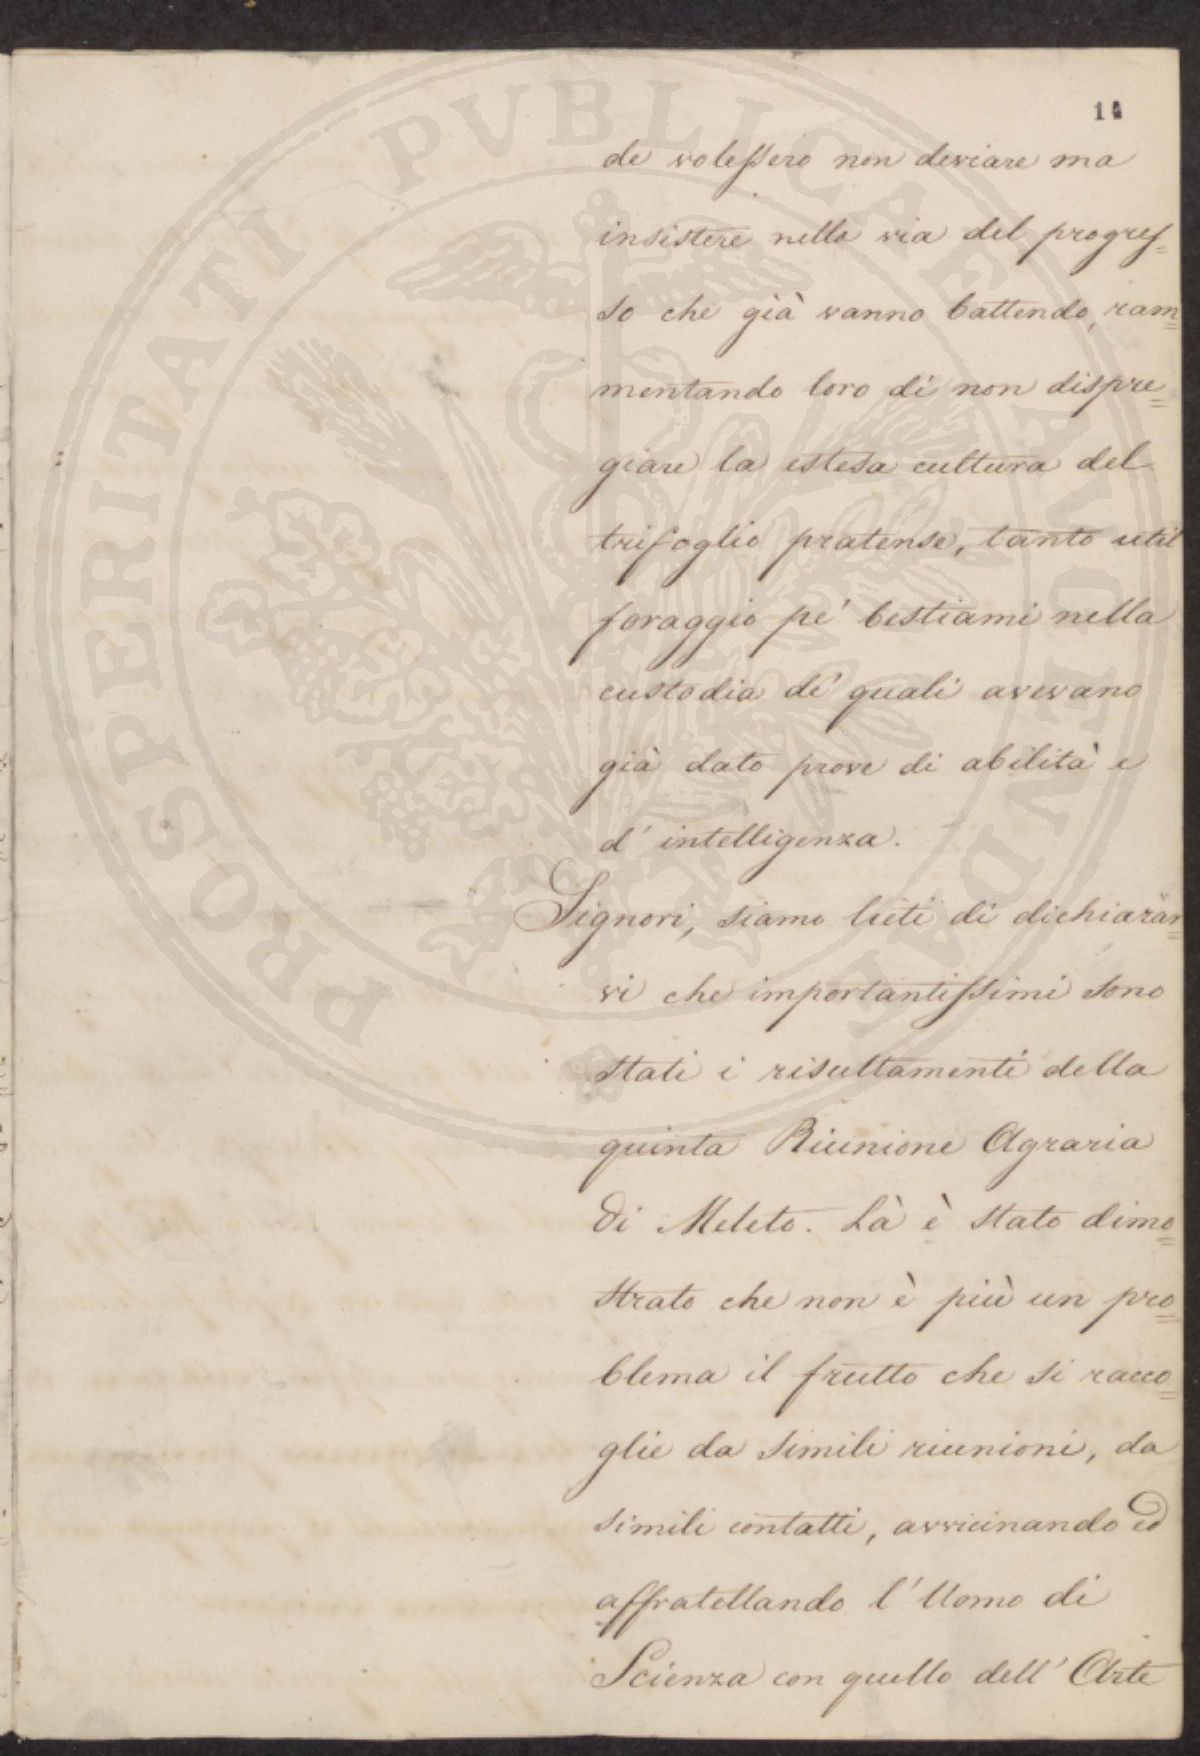 PROSPERITATI PVBLICAE AVGENDAE
14
de volessero non deviare ma
insistere nella via del progres=
so che già vanno battendo, ram=
mentando loro di non dispre=
giare la estesa cultura del
trifoglio pratense, tanto util
foraggio pe' bestiami nella
custodia de' quali avevano
già dato prove di abilità e
d' intelligenza.
Signori, siamo lieti di dichiarar=
vi che importantissimi sono
stati i risultamenti della
quinta Riunione Agraria
di Meleto. Là è stato dimo=
strato che non è più un pro=
blema il frutto che si racco=
glie da simili riunioni, da
simili contatti, avvicinando ed
affratellando l' Uomo di
Scienza con quello dell' Arte